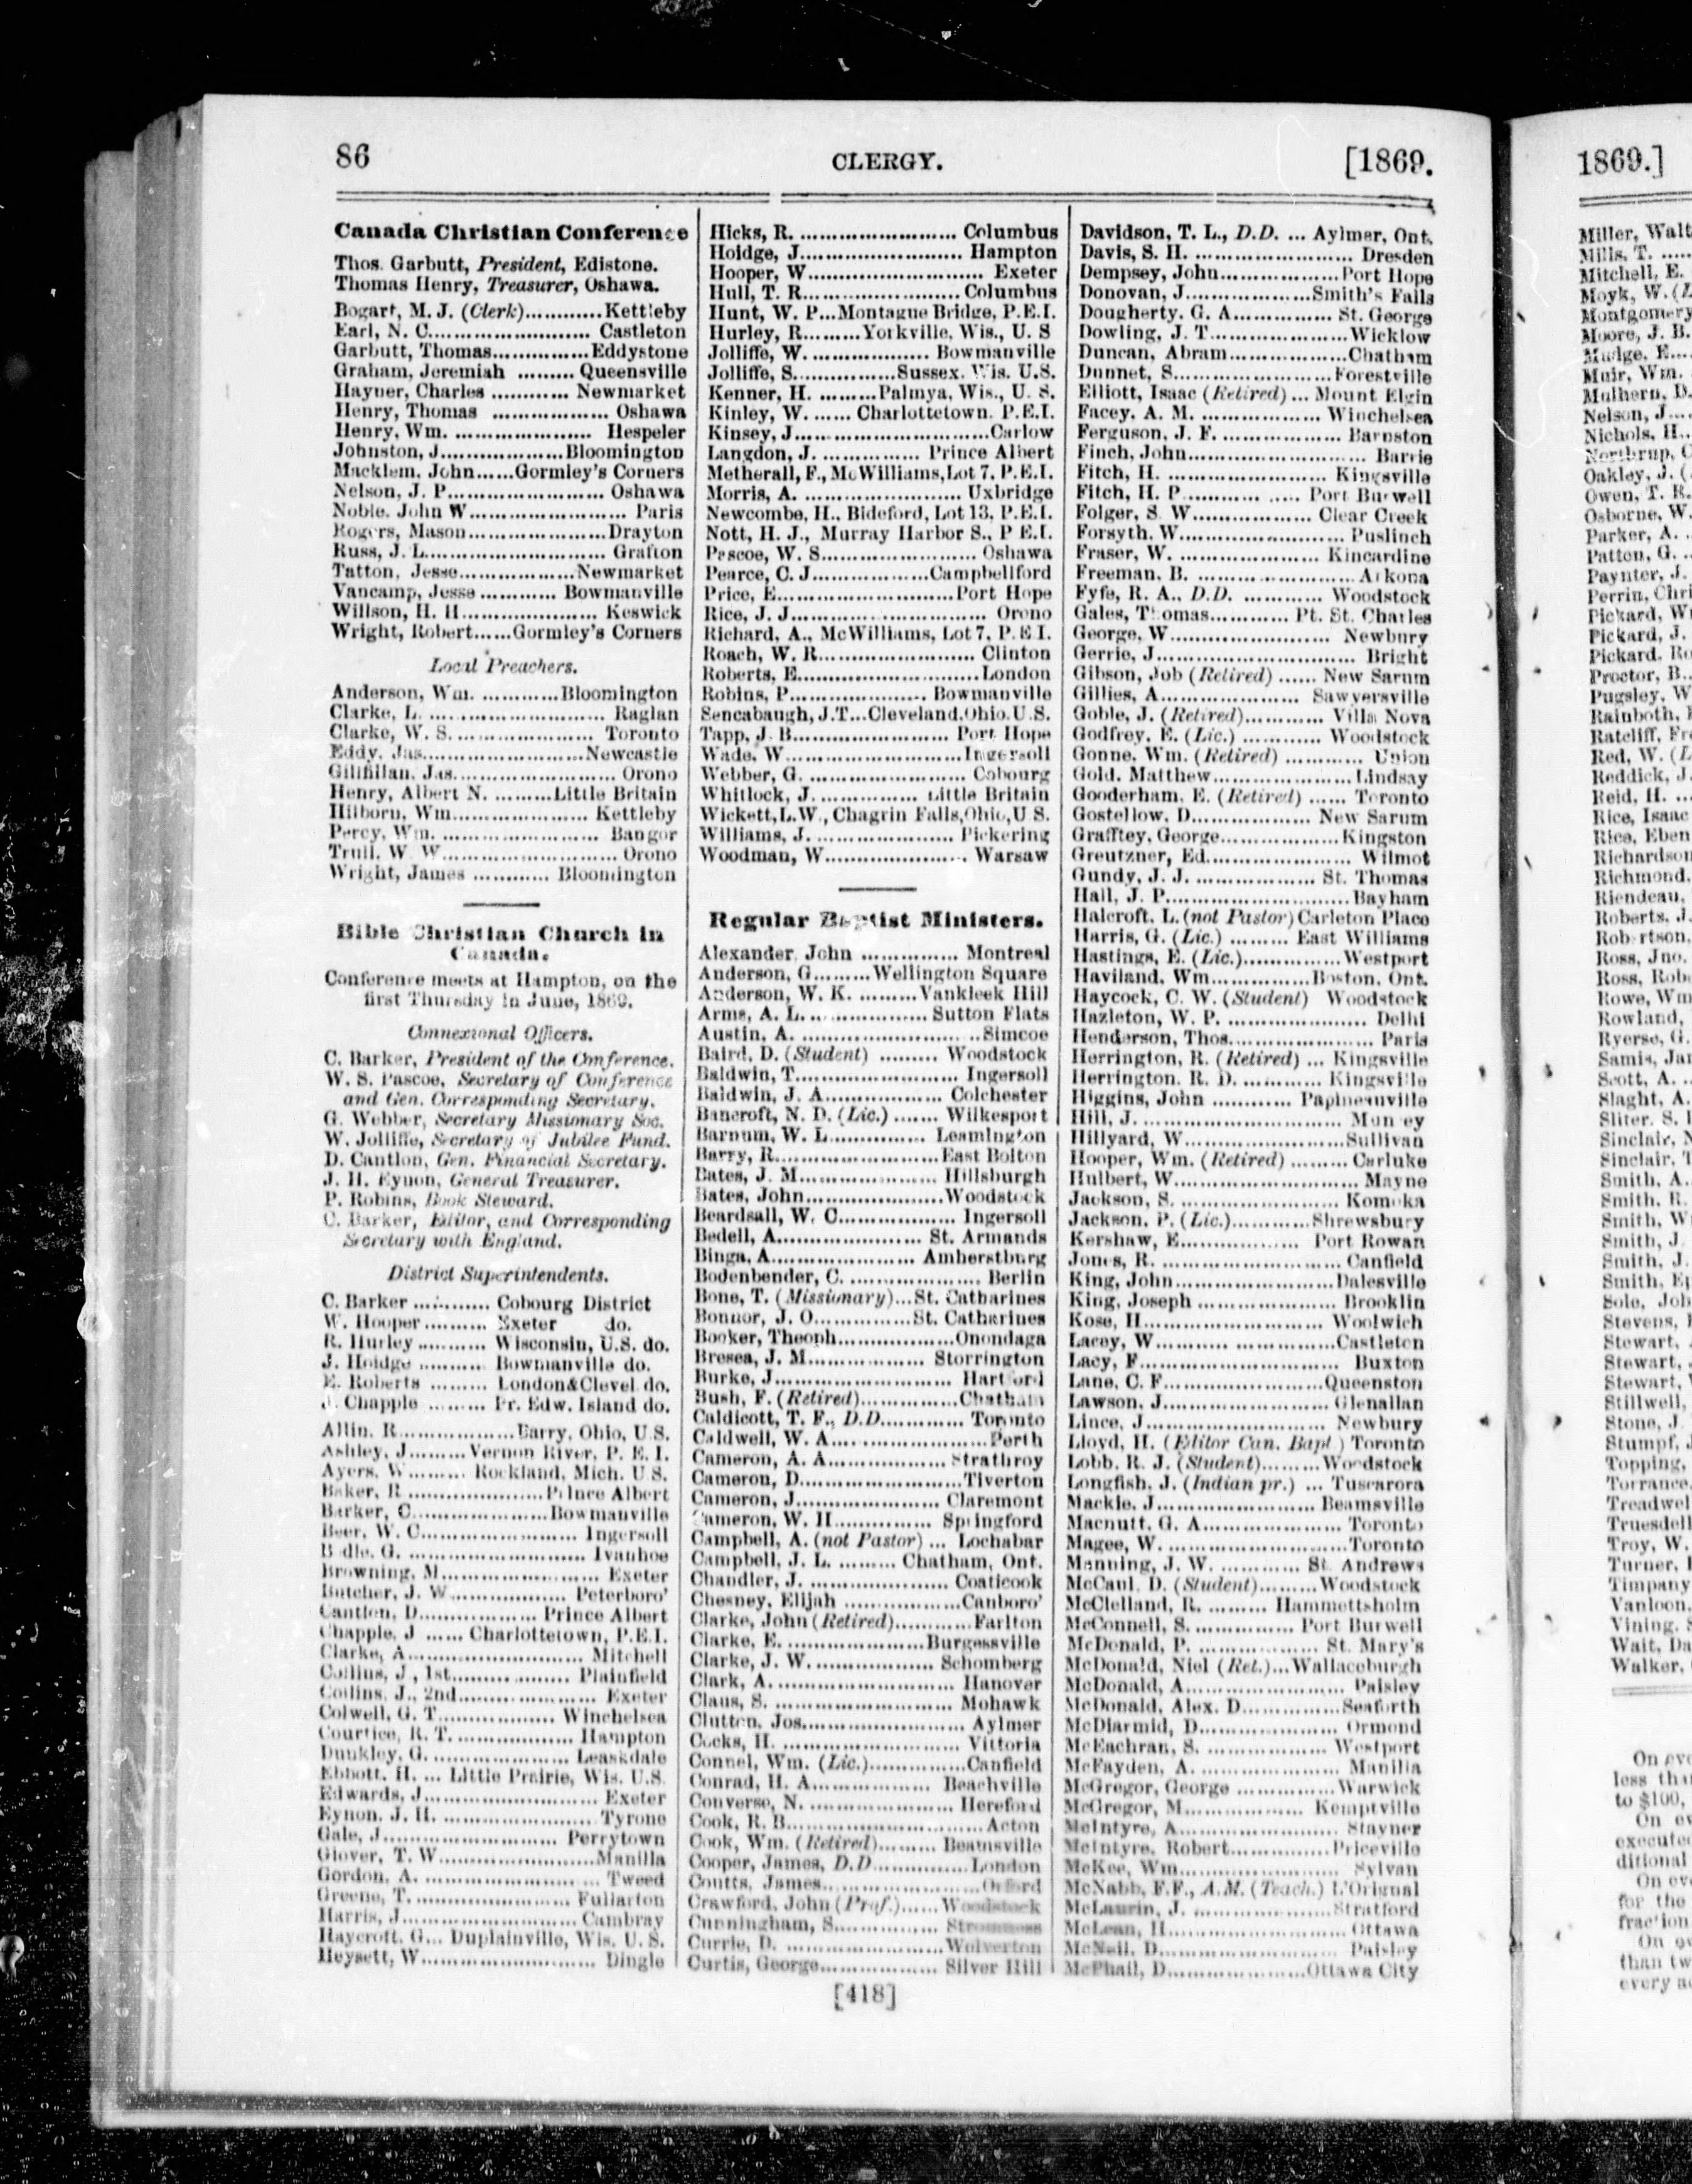 86 CLERGY. [1869.
Canada Christian Conference
Thos. Garbutt, President, Edistone.
Thomas Henry, Treasurer, Oshawa.
Bogart, M. J. (Clerk)............Kettleby
Earl, N. C......................... Castleton
Garbutt, Thomas...............Eddystone
Graham, Jeremiah ......... Queensville
Hayner, Charles ............ Newmarket
Henry, Thomas .................. Oshawa
Henry, Wm. ..................... Hespeler
Johnston, J...................Bloomington
Macklem, John......Gormley's Corners
Nelson, J. P........................ Oshawa
Noble, John W......................... Paris
Rogers, Mason......................Drayton
Russ, J. L............................ Grafton
Tatton, Jesse..................Newmarket
Vancamp, Jesse ............ Bowmanville
Willson, H. H..................... Keswick
Wright, Robert......Gormley's Corners
Local Preachers.
Anderson, Wm. ............Bloomington
Clarke, L. ............................ Raglan
Clarke, W. S. ...................... Toronto
Eddy, Jas.........................Newcastle
Gilfillan, Jas.......................... Orono
Henry, Albert N. .........Little Britain
Hilborn, Wm...................... Kettleby
Percy, Wm. ........................ Bangor
Trull, W. W........................... Orono
Wright, James ............ Bloomington
Bible Christian Church in
Canada.
Conference meets at Hampton, on the
first Thursday in June, 1869.
Connexional Officers.
C. Barker, President of the Conference.
W. S. Pascoe, Secretary of Conference
and Gen. Corresponding Secretary.
G. Webber, Secretary Missionary Soc.
W. Jolliffe, Secretary of Jubilee Fund.
D. Cantlon, Gen. Financial Secretary.
J. H. Eynon, General Treasurer.
P. Robins, Book Steward.
C. Barker, Editor, and Corresponding
Secretary with England.
District Superintendents.
C. Barker ............ Cobourg District
W. Hooper .......... Exeter do.
R. Hurley ........... Wisconsin, U.S. do.
J. Hoidge .......... Bowmanville do.
E. Roberts ......... London&Clevel. do.
J. Chapple ......... Pr. Edw. Island do.
Allin, R..................Barry, Ohio, U.S.
Ashley, J.........Vernon River, P. E. I.
Ayers, W......... Rockland, Mich. U.S.
Baker, R .....................Prince Albert
Barker, C.....................Bowmanville
Beer, W. C......................... Ingersoll
B dle, G. ............................ Ivanhoe
Browning, M........................ Exeter
Butcher, J. W.................. Peterboro'
Cantlon, D.................. Prince Albert
Chapple, J ...... Charlottetown, P.E.I.
Clarke, A............................ Mitchell
Collins, J., 1st.................. Plainfield
Collins, J., 2nd...................... Exeter
Colwell, G. T.................. Winchelsea
Courtice, R. T.................. Hampton
Dunkley, G...................... Leaskdale
Ebbott, H. ... Little Prairie, Wis. U.S.
Edwards, J............................ Exeter
Eynon, J. H. ........................ Tyrone
Gale, J........................... Perrytown
Glover, T. W.........................Manilla
Gordon, A. ............................ Tweed
Greene, T......................... Fullarton
Harris, J........................... Cambray
Haycroft, G... Duplainville, Wis. U. S.
Heysett, W........................... Dingle
Hicks, R. ......................... Columbus
Hoidge, J......................... Hampton
Hooper, W............................ Exeter
Hull, T. R........................Columbus
Hunt, W. P...Montague Bridge, P.E.I.
Hurley, R.........Yorkville, Wis., U. S
Jolliffe, W. .................. Bowmanville
Jolliffe, S................Sussex, Wis. U.S.
Kenner, H. .........Palmya, Wis., U. S.
Kinley, W. ...... Charlottetown, P.E.I.
Kinsey, J..............................Carlow
Langdon, J. ............... Prince Albert
Metherall, F., McWilliams,Lot 7, P.E.I.
Morris, A. ........................ Uxbridge
Newcombe, H., Bideford, Lot 13, P.E.I.
Nott, H. J., Murray Harbor S., P E.I.
Pascoe, W. S........................ Oshawa
Pearce, C. J..................Campbellford
Price, E...........................Port Hope
Rice, J. J............................... Orono
Richard, A., McWilliams, Lot 7, P.E.I.
Roach, W. R........................ Clinton
Roberts, E............................London
Robins, P..................... Bowmanville
Sencabaugh, J.T...Cleveland,Ohio,U.S.
Tapp, J. B........................ Port Hope
Wade, W...........................Ingersoll
Webber, G. ........................ Cobourg
Whitlock, J. ............... Little Britain
Wickett,L.W., Chagrin Falls,Ohio,U S.
Williams, J. ..................... Pickering
Woodman, W...................... Warsaw
Regular Baptist Ministers.
Alexander, John ............... Montreal
Anderson, G.........Wellington Square
Anderson, W. K. .........Vankleek Hill
Arms, A. L. .................. Sutton Flats
Austin, A. ............................Simcoe
Baird, D. (Student) ......... Woodstock
Baldwin, T......................... Ingersoll
Baldwin, J. A................... Colchester
Bancroft, N. D. (Lic.) ....... Wilkesport
Barnum, W. L............... Leamington
Barry, R.........................East Bolton
Bates, J. M..................... Hillsburgh
Bates, John.....................Woodstock
Beardsall, W. C.................. Ingersoll
Bedell, A...................... St. Armands
Binga, A...................... Amherstburg
Bodenbender, C. .................... Berlin
Bone, T. (Missionary)...St. Catharines
Bonnor, J. O...............St. Catharines
Booker, Theoph..................Onondaga
Bresea, J. M.................. Storrington
Burke, J........................... Hartford
Bush, F. (Retired)...............Chatham
Caldicott, T. F., D.D............. Toronto
Caldwell, W. A........................Perth
Cameron, A. A..................Strathroy
Cameron, D.........................Tiverton
Cameron, J...................... Claremont
Cameron, W. H............... Springford
Campbell, A. (not Pastor) ... Lochabar
Campbell, J. L. ......... Chatham, Ont.
Chandler, J. ..................... Coaticook
Chesney, Elijah ..................Canboro'
Clarke, John (Retired)............Farlton
Clarke, E. .....................Burgessville
Clarke, J. W. .................. Schomberg
Clark, A............................ Hanover
Claus, S. ........................... Mohawk
Clutton, Jos......................... Aylmer
Cocks, H. ........................... Vittoria
Connel, Wm. (Lic.)...............Canfield
Conrad, H. A.................. Beachville
Converse, N. ..................... Hereford
Cook, R. B..............................Acton
Cook, Wm. (Retired)......... Beamsville
Cooper, James, D.D...............London
Coutts, James........................Orford
Crawford, John (Prof.)......Woodstock
Cunningham, S............... Stromness
Currie, D. ........................Wolverton
Curtis, George.................. Silver Hill
Davidson, T. L., D.D. ... Aylmer, Ont.
Davis, S. H. ........................ Dresden
Dempsey, John..................Port Hope
Donovan, J...................Smith's Falls
Dougherty, G. A............... St. George
Dowling, J. T..................... Wicklow
Duncan, Abram..................Chatham
Dunnet, S........................Forestville
Elliott, Isaac (Retired)... Mount Elgin
Facey, A. M. .................. Winchelsea
Ferguson, J. F. .................. Barnston
Finch, John........................... Barrie
Fitch, H. ........................ Kingsville
Fitch, H. P.................. Port Burwell
Folger, S. W.................. Clear Creek
Forsyth, W........................ Puslinch
Fraser, W. ..................... Kincardine
Freeman, B. ........................Arkona
Fyfe, R. A., D.D. ............ Woodstock
Gales, Thomas............ Pt. St. Charles
George, W........................ Newbury
Gerrie, J.............................. Bright
Gibson, Job (Retired) ...... New Sarum
Gillies, A..................... Sawyersville
Goble, J. (Retired)............ Villa Nova
Godfrey, E. (Lic.) ............ Woodstock
Gonne, Wm. (Retired) ............ Union
Gold, Matthew.....................Lindsay
Gooderham, E. (Retired) ...... Toronto
Gostellow, D.................. New Sarum
Grafftey, George..................Kingston
Greutzner, Ed..................... Wilmot
Gundy, J. J. .................. St. Thomas
Hall, J. P...........................Bayham
Halcroft, L. (not Pastor) Carleton Place
Harris, G. (Lic.) ......... East Williams
Hastings, E. (Lic.)...............Westport
Haviland, Wm...............Boston, Ont.
Haycock, C. W. (Student) Woodstock
Hazleton, W. P. ..................... Delhi
Henderson, Thos..................... Paris
Herrington, R. (Retired) ... Kingsville
Herrington, R. D. ............ Kingsville
Higgins, John ............ Papineauville
Hill, J. .............................. Mun ey
Hillyard, W........................Sullivan
Hooper, Wm. (Retired) ......... Carluke
Hulbert, W........................... Mayne
Jackson, S. ........................ Komoka
Jackson, P. (Lic.)............Shrewsbury
Kershaw, E.................. Port Rowan
Jones, R. ........................... Canfield
King, John........................Dalesville
King, Joseph ..................... Brooklin
Kose, H........................... Woolwich
Lacey, W.........................Castleton
Lacy, F.............................. Buxton
Lane, C. F........................Queenston
Lawson, J........................ Glenallan
Lince, J........................... Newbury
Lloyd, H. (Editor Can. Bapt.) Toronto
Lobb, R. J. (Student).........Woodstock
Longfish, J. (Indian pr.) ... Tuscarora
Mackie, J........................ Beamsville
Macnutt, G. A..................... Toronto
Magee, W. ...........................Toronto
Manning, J. W. ............ St. Andrews
McCaul, D. (Student).........Woodstock
McClelland, R. ......... Hammettsholm
McConnell, S. ............... Port Burwell
McDonald, P. .................. St. Mary's
McDonald, Niel (Ret.)...Wallaceburgh
McDonald, A........................ Paisley
McDonald, Alex. D...............Seaforth
McDiarmid, D..................... Ormond
McEachran, S. .................. Westport
McFayden, A. ..................... Manilla
McGregor, George ...............Warwick
McGregor, M.................. Kemptville
McIntyre, A........................ Stayner
McIntyre, Robert...............Priceville
McKee, Wm........................ Sylvan
McNabb, F.F., A.M. (Teach.) L'Orignal
McLaurin, J. ......................Stratford
McLean, H........................... Ottawa
McNeil, D........................... Paisley
McPhail, D.....................Ottawa City
[418]
1869.]
Miller, Walt
Mills, T. .....
Mitchell, E.
Moyk, W. (L
Montgomery
Moore, J. B.
Mudge, E....
Muir, Wm.
Mulhern, D.
Nelson, J....
Nichols, H...
Northrup, C
Oakley, J. (
Owen, T. R.
Osborne, W.
Parker, A. ..
Patton, G. ...
Paynter, J.
Perrin, Chri
Pickard, W
Pickard, J.
Pickard, Ro
Proctor, B...
Pugsley, W
Rainboth,
Ratcliff, Fr
Red, W. (L
Reddick, J.
Reid, H. ...
Rice, Isaac
Rice, Eben
Richardson
Richmond,
Riendeau,
Roberts, J.
Rob rtson,
Ross, Jno.
Ross, Rob
Rowe, Wm
Rowland,
Ryerse, G.
Samis, Jam
Scott, A. ..
Slaght, A.
Sliter, S.
Sinclair, N
Sinclair, T
Smith, A.
Smith, R.
Smith, W
Smith, J
Smith, J.
Smith, Ep
Sole, Joh
Stevens,
Stewart,
Stewart,
Stewart,
Stillwell,
Stone, J.
Stumpf, J
Topping,
Torrance,
Treadwel
Truesdell
Troy, W.
Turner,
Timpany
Vanloon,
Vining, S
Wait, Da
Walker,
On eve
less tha
to $100,
On ev
execute
ditional
On eve
for the
fraction
On
than tw
every a